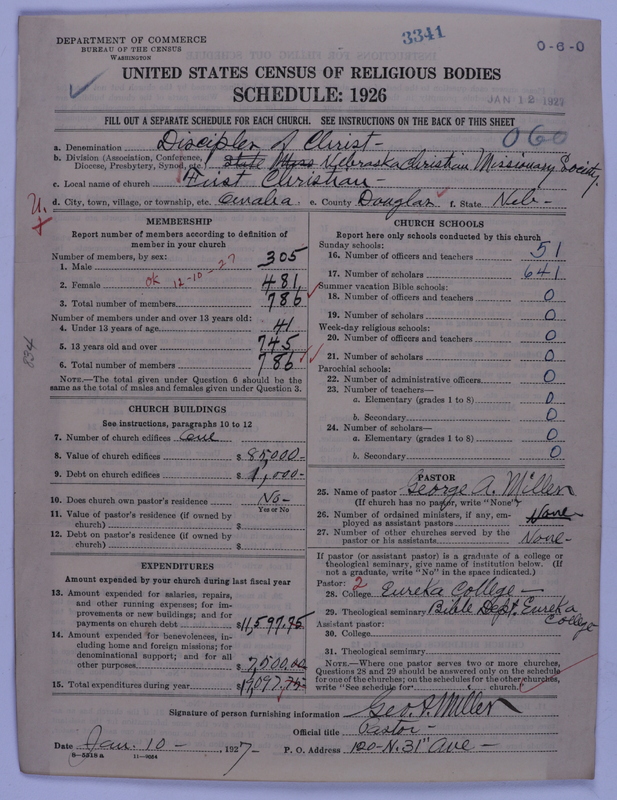 3341
DEPARTMENT OF COMMERCE
BUREAU OF THE CENSUS
WASHINGTON
0-6-0
UNITED STATES CENSUS OF RELIGIOUS BODIES
SCHEDULE: 1926
JAN 12 1927
FILL OUT A SEPARATE SCHEDULE FOR EACH CHURCH. SEE INSTRUCTIONS ON THE BACK OF THIS SHEET
060
a. Denomination Disciples of Christ-
b. Division (Association, Conference, Diocese, Presbytery, Synod, etc.) State Miss Nebraska Christian Missionary Society.
c. Local name of church First Christian-
d. City, town, village, or township, etc. Omaha e. County Douglas f. State Neb-
U.
MEMBERSHIP
Report number of members according to definition of member in your church
Number of members, by sex:
1. Male 305
2. Female 481
OK 12-10-27
3. Total number of members 786
Number of members under and over 13 years old:
4. Under 13 years of age 41
5. 13 years old and over 745
6. Total number of members 786
834
NOTE.—The total given under Question 6 should be the same as the total of males and females given under Question 3.
CHURCH BUILDINGS
See instructions, paragraphs 10 to 12
7. Number of church edifices One
8. Value of church edifices $ 85000-
9. Debt on church edifices $ 1,000-
10. Does church own pastor's residence No-
Yes or No
11. Value of pastor's residence (if owned by church) $
12. Debt on pastor's residence (if owned by church) $
EXPENDITURES
Amount expended by your church during last fiscal year
13. Amount expended for salaries, repairs, and other running expenses; for improvements or new buildings; and for payments on church debt $
14. Amount expended for benevolences, including home and foreign missions; for denominational support; and for all other purposes $ 7500.00
15. Total expenditures during year $
CHURCH SCHOOLS
Report here only schools conducted by this church
Sunday schools:
16. Number of officers and teachers 51
17. Number of scholars 641
Summer vacation Bible schools:
18. Number of officers and teachers 0
19. Number of scholars 0
Week-day religious schools:
20. Number of officers and teachers 0
21. Number of scholars 0
Parochial schools:
22. Number of administrative officers 0
23. Number of teachers—
a. Elementary (grades 1 to 8) 0
b. Secondary 0
24. Number of scholars—
a. Elementary (grades 1 to 8) 0
b. Secondary 0
PASTOR
25. Name of pastor George A. Miller
(If church has no pastor, write "None")
26. Number of ordained ministers, if any, employed as assistant pastors None
27. Number of other churches served by the pastor or his assistants None-
If pastor (or assistant pastor) is a graduate of a college or theological seminary, give name of institution below. (If not a graduate, write "No" in the space indicated.)
Pastor: 2
28. College Eureka College-
29. Theological seminary Bible Dept. Eureka College
Assistant pastor:
30. College
31. Theological seminary
NOTE.—Where one pastor serves two or more churches, Questions 28 and 29 should be answered only on the schedule for one of the churches; on the schedules for the other churches, write "See schedule for church."
Signature of person furnishing information Geo. A. Miller
Official title Pastor-
Date Jan. 10- 1927- P. O. Address 120-N. 31st Ave-
8—5518 A 11—9664